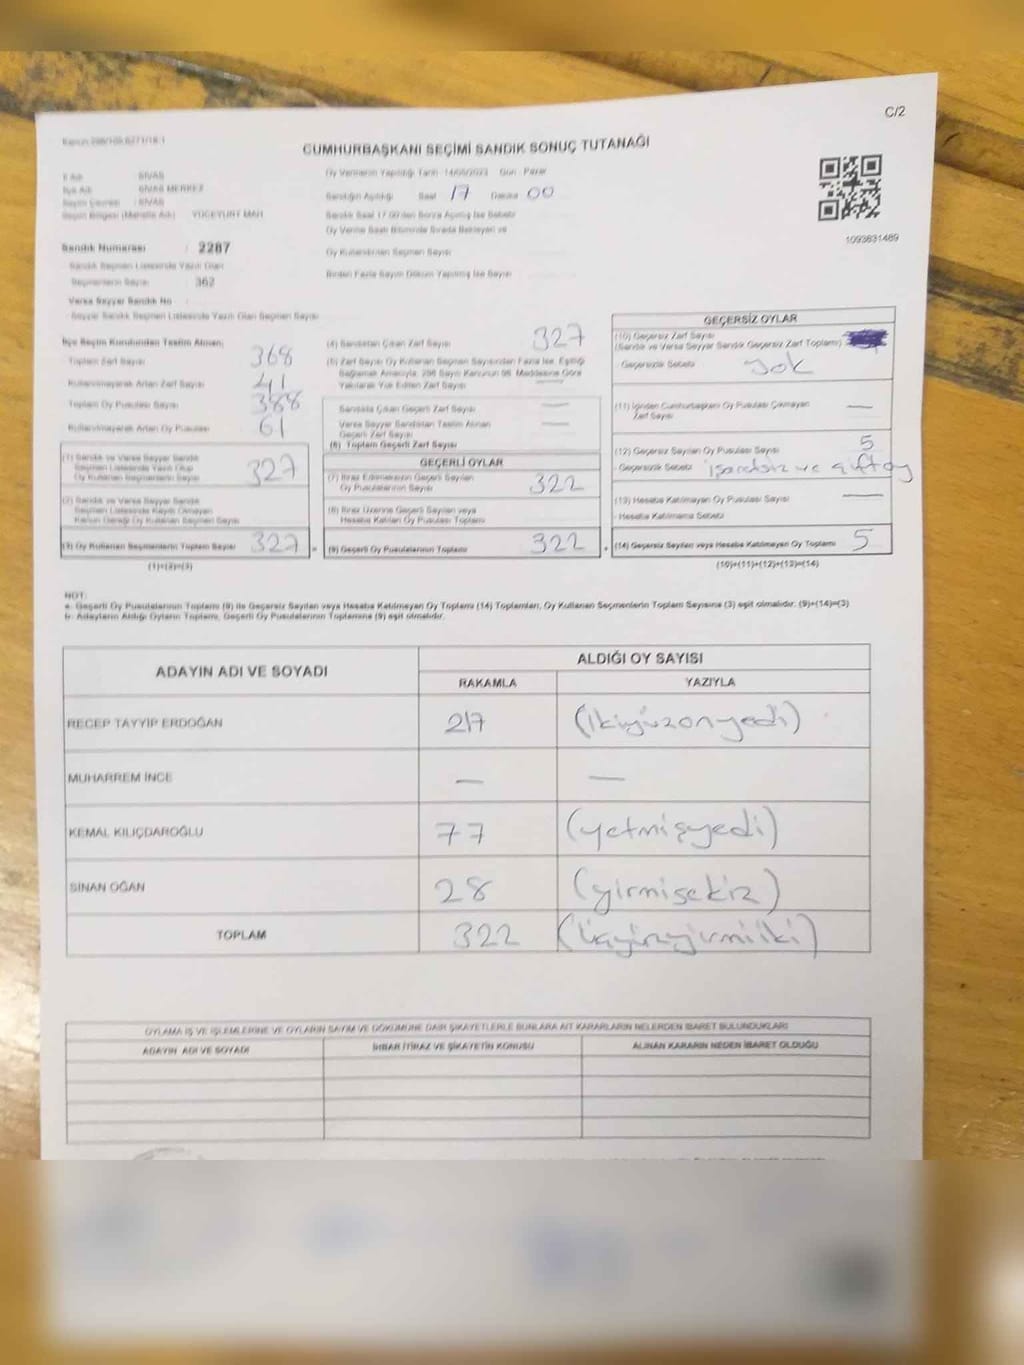 C/2
CUMHURBAŞKANI SEÇİMİ SANDIK SONUÇ TUTANAĞI
İl Adı SİVAS
İlçe Adı SİVAS MERKEZ
Seçim Çevresi : SİVAS
Seçim Bölgesi (Mahalle Adı) YÜCEYURT MAH.
Sandık Numarası : 2287
Sandık Seçmen Listesinde Yazılı Olan
Seçmenlerin Sayısı 362
Varsa Seyyar Sandık No
Seyyar Sandık Seçmen Listesinde Yazılı Olan Seçmen Sayısı
Oy Vermenin Yapıldığı Tarih 14/05/2023 Gün : Pazar
Sandığın Açıldığı Saat 17 Dakika 00
Sandık Saat 17.00'den Sonra Açılmış İse Sebebi
Oy Verme Saati Bitiminde Sırada Bekleyen ve
Oy Kullandırılan Seçmen Sayısı
Birden Fazla Sayım Döküm Yapılmış İse Sayısı
1093631489
İlçe Seçim Kurulundan Teslim Alınan;
Toplam Zarf Sayısı 368
Kullanılmayarak Artan Zarf Sayısı 41
Toplam Oy Pusulası Sayısı 388
Kullanılmayarak Artan Oy Pusulası 61
(1) Sandık ve Varsa Seyyar Sandık
Seçmen Listesinde Yazılı Olup
Oy Kullanan Seçmenlerin Sayısı 327
(2) Sandık ve Varsa Seyyar Sandık
Seçmen Listesinde Kayıtlı Olmayan
Kanun Gereği Oy Kullanan Seçmen Sayısı
(3) Oy Kullanan Seçmenlerin Toplam Sayısı 327
(1)+(2)=(3)
(4) Sandıktan Çıkan Zarf Sayısı 327
(5) Zarf Sayısı Oy Kullanan Seçmen Sayısından Fazla İse, Eşitliği
Sağlamak Amacıyla, 298 Sayılı Kanunun 98. Maddesine Göre
Yakılarak Yok Edilen Zarf Sayısı —
Sandıkta Çıkan Geçerli Zarf Sayısı —
Varsa Seyyar Sandıktan Teslim Alınan
Geçerli Zarf Sayısı —
(6) Toplam Geçerli Zarf Sayısı
GEÇERLİ OYLAR
(7) İtiraz Edilmeksizin Geçerli Sayılan
Oy Pusulalarının Sayısı 322
(8) İtiraz Üzerine Geçerli Sayılan veya
Hesaba Katılan Oy Pusulası Toplamı
(9) Geçerli Oy Pusulalarının Toplamı 322
GEÇERSİZ OYLAR
(10) Geçersiz Zarf Sayısı
(Sandık ve Varsa Seyyar Sandık Geçersiz Zarf Toplamı)
Geçersizlik Sebebi yok
(11) İçinden Cumhurbaşkanı Oy Pusulası Çıkmayan
Zarf Sayısı —
(12) Geçersiz Sayılan Oy Pusulası Sayısı 5
Geçersizlik Sebebi işaretsiz ve çift oy
(13) Hesaba Katılmayan Oy Pusulası Sayısı —
- Hesaba Katılmama Sebebi
(14) Geçersiz Sayılan veya Hesaba Katılmayan Oy Toplamı 5
(10)+(11)+(12)+(13)=(14)
NOT:
a- Geçerli Oy Pusulalarının Toplamı (9) ile Geçersiz Sayılan veya Hesaba Katılmayan Oy Toplamı (14) Toplamları, Oy Kullanan Seçmenlerin Toplam Sayısına (3) eşit olmalıdır. (9)+(14)=(3)
b- Adayların Aldığı Oyların Toplamı, Geçerli Oy Pusulalarının Toplamına (9) eşit olmalıdır.
ADAYIN ADI VE SOYADI ALDIĞI OY SAYISI
RAKAMLA YAZIYLA
RECEP TAYYİP ERDOĞAN 217 (ikiyüzonyedi)
MUHARREM İNCE — —
KEMAL KILIÇDAROĞLU 77 (yetmişyedi)
SİNAN OĞAN 28 (yirmisekiz)
TOPLAM 322 (üçyüzyirmiiki)
OYLAMA İŞ VE İŞLEMLERİNE VE OYLARIN SAYIM VE DÖKÜMÜNE DAİR ŞİKAYETLERLE BUNLARA AİT KARARLARIN NELERDEN İBARET BULUNDUKLARI
ADAYIN ADI VE SOYADI İHBAR İTİRAZ VE ŞİKAYETİN KONUSU ALINAN KARARIN NEDEN İBARET OLDUĞU